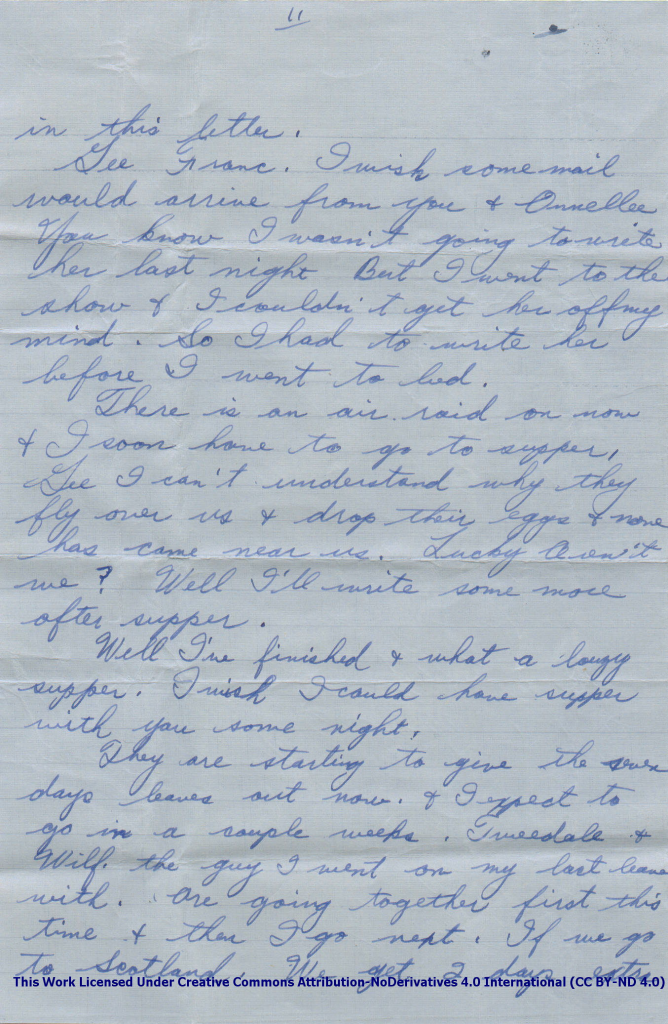 11
in this letter.
Gee Franc. I wish some mail
would arrive from you & Annellee
You know I wasn't going to write
her last night But I went to the
show & I couldn't get her off my
mind. So I had to write her
before I went to bed.
There is an air raid on now
& I soon have to go to supper,
Gee I can't understand why they
fly over us & drop their eggs & none
has came near us. Lucky Aren't
we? Well I'll write some more
after supper.
Well I've finished & what a lousy
supper. I wish I could have supper
with you some night.
They are starting to give the seven
days leaves out now. & I expect to
go in a couple weeks. Tweedale &
Wilf. the guy I went on my last leave
with. are going together first this
time & then I go next. If we go
to Scotland. We get 2 days extra
This Work Licensed Under Creative Commons Attribution-NoDerivatives 4.0 International (CC BY-ND 4.0)